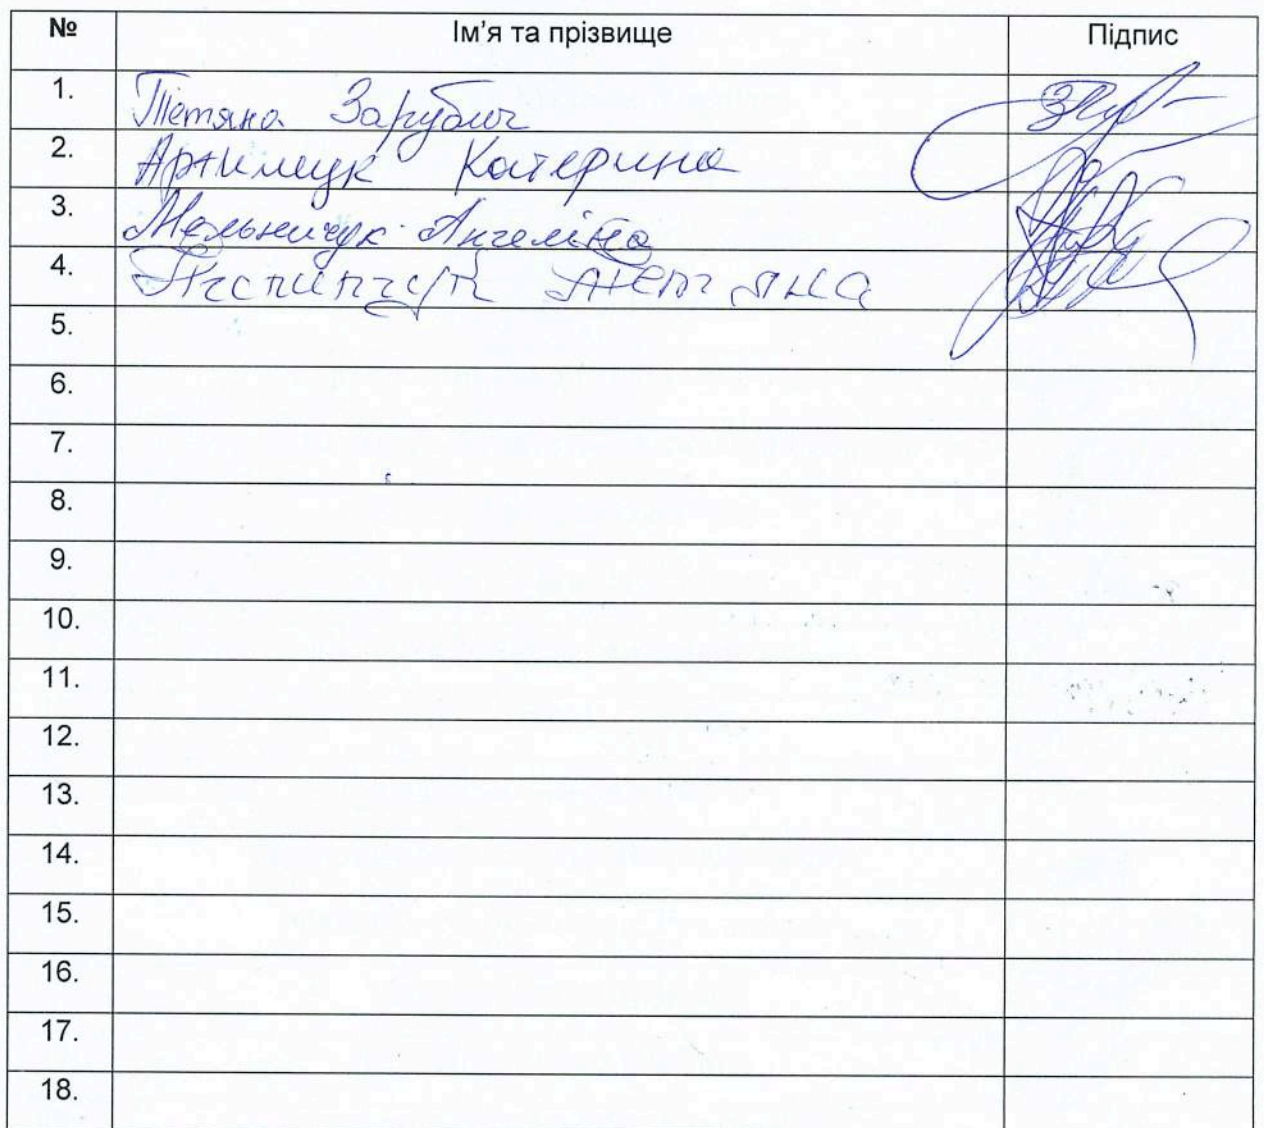 № Ім'я та прізвище Підпис
1. Тетяна Зарубич
2. Артимщук Катерина
3. Мельничук Ангеліна
4. Тетяна
5.
6.
7.
8.
9.
10.
11.
12.
13.
14.
15.
16.
17.
18.